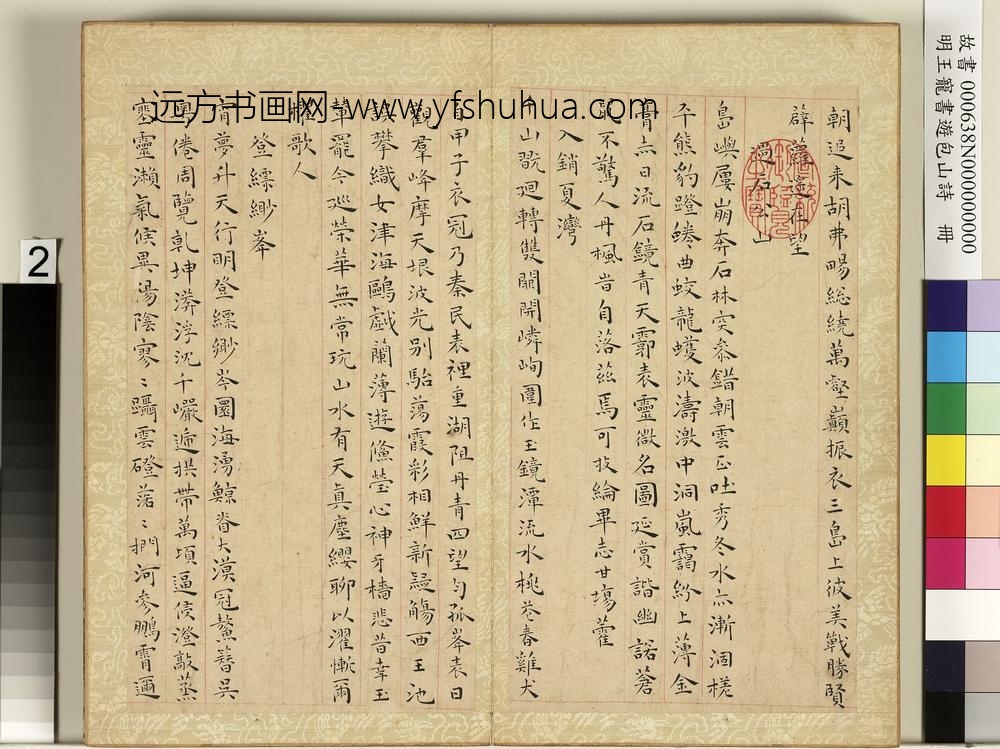 朝追来胡弗暢総繞萬壑巔振衣三島上彼美戰勝賢
薜蘿遥在望
過石公山
島嶼屢崩奔石林突参錯朝雲正吐秀冬水亦漸涸槎
牙熊豹蹬蜷曲蛟龍蠖波濤激中洞嵐靄紛上薄金
膏亦日流石鏡青天霩袁靈徵名圖延賞諧幽諾蒼
不驚人丹楓皆自落茲焉可投綸畢志甘場藿
入銷夏灣
山既廻轉雙關開嶙峋圍作玉鏡潭流水桃花春雞犬
自甲子衣冠乃秦民表裡重湖阻丹青四望勻孤峯袁日
觀羣峰摩天垠波光別駘蕩霞彩相鮮新疑觴西王池
誤攀織女津海鷗戲蘭薄遊鯈瑩心神牙檣悲昔幸玉
輦罷今巡榮華無常玩山水有天真塵纓聊以濯慚爾
櫂歌人
登縹緲峯
宵夢升天行明登縹緲岑圜海湧鯨脊大漠冠鰲簪吳
粵倦周覽乾坤漭浮沈千巘遞拱帶萬頃逼侵澄歊蒸
窒靈瀨氣候異湯陰寥〻躡雲磴荦〻捫河参鵬霄邇
远方书画网-www.yfshuhua.com
2
故書 000638N000000000
明王寵書遊包山詩 冊